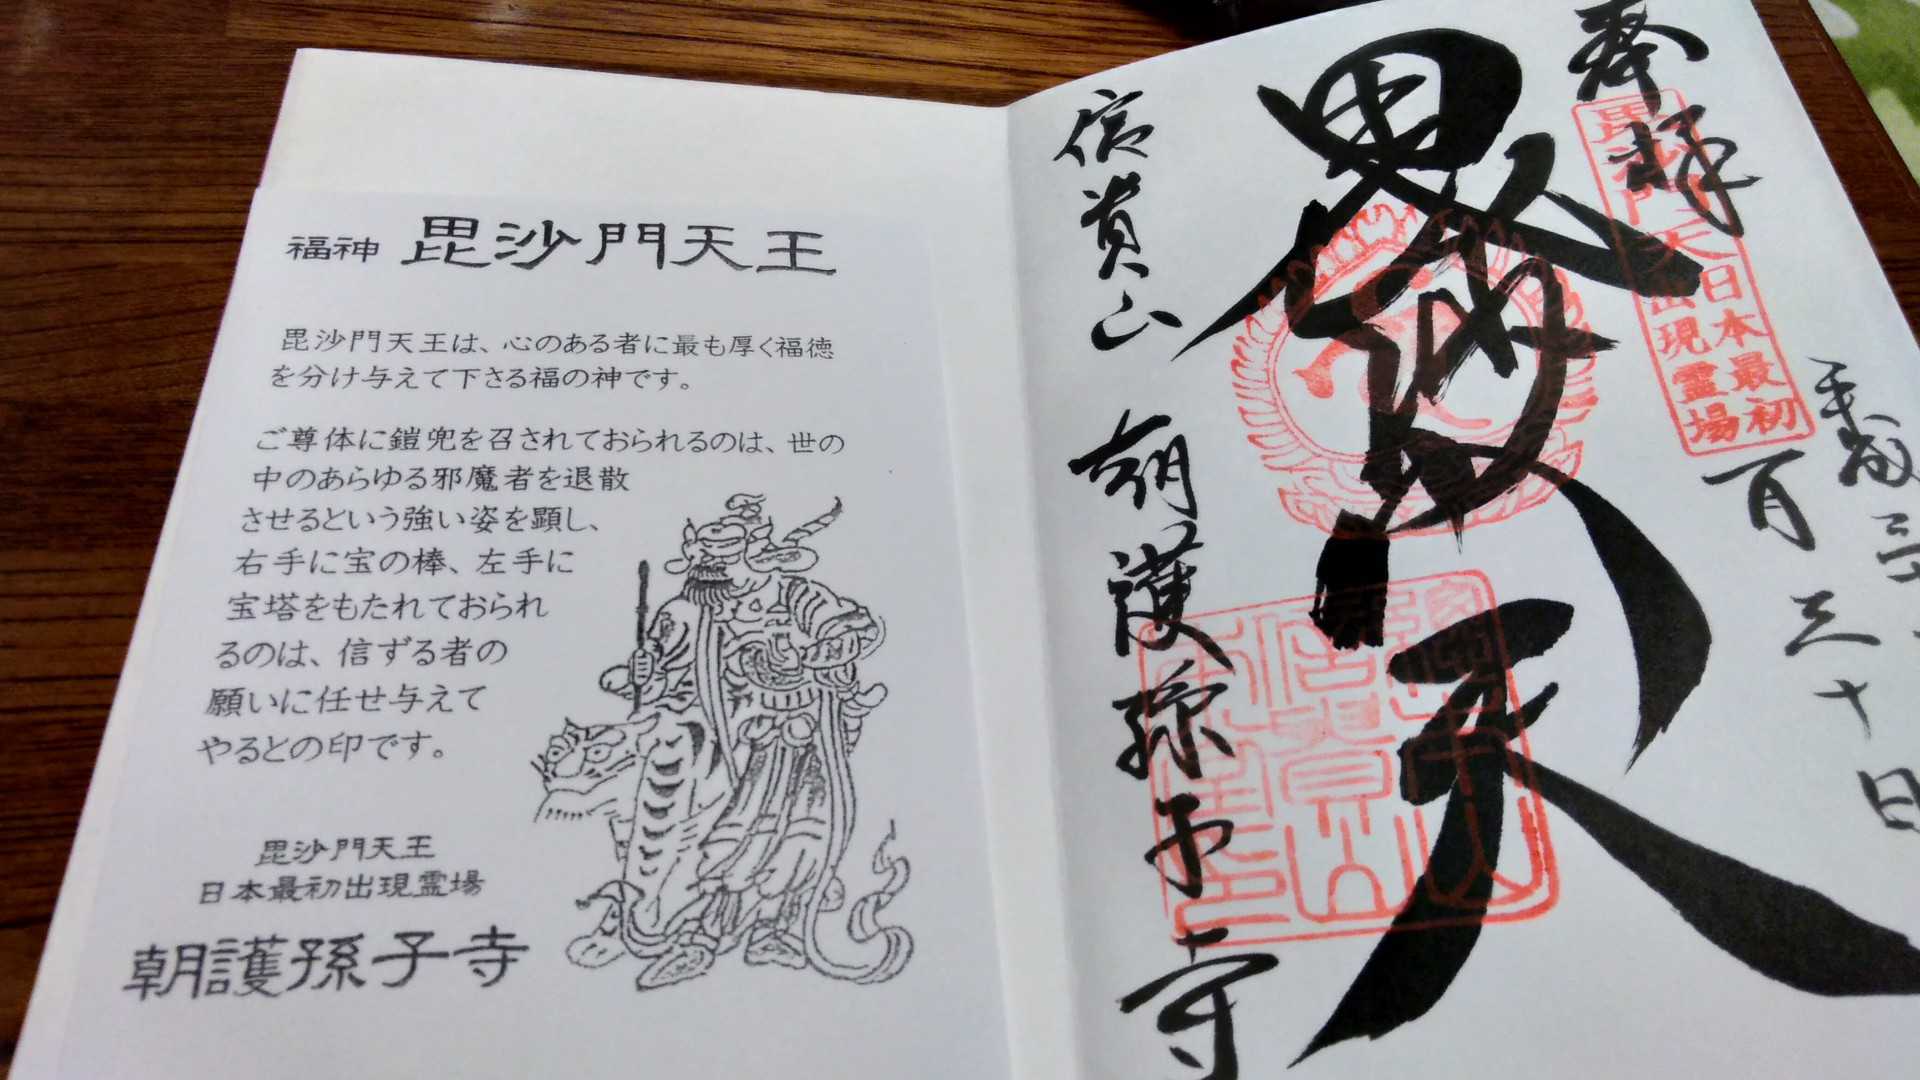 福神 毘沙門天王
毘沙門天王は、心のある者に最も厚く福徳
を分け与えて下さる福の神です。
ご尊体に鎧兜を召されておられるのは、世の
中のあらゆる邪魔者を退散
させるという強い姿を顕し、
右手に宝の棒、左手に
宝塔をもたれておられ
るのは、信ずる者の
願いに任せ与えて
やるとの印です。
毘沙門天王
日本最初出現霊場
朝護孫子寺
奉拝
毘沙門天
日本最初
出現霊場
月三十日
毘沙門天
信貴山 朝護孫子寺